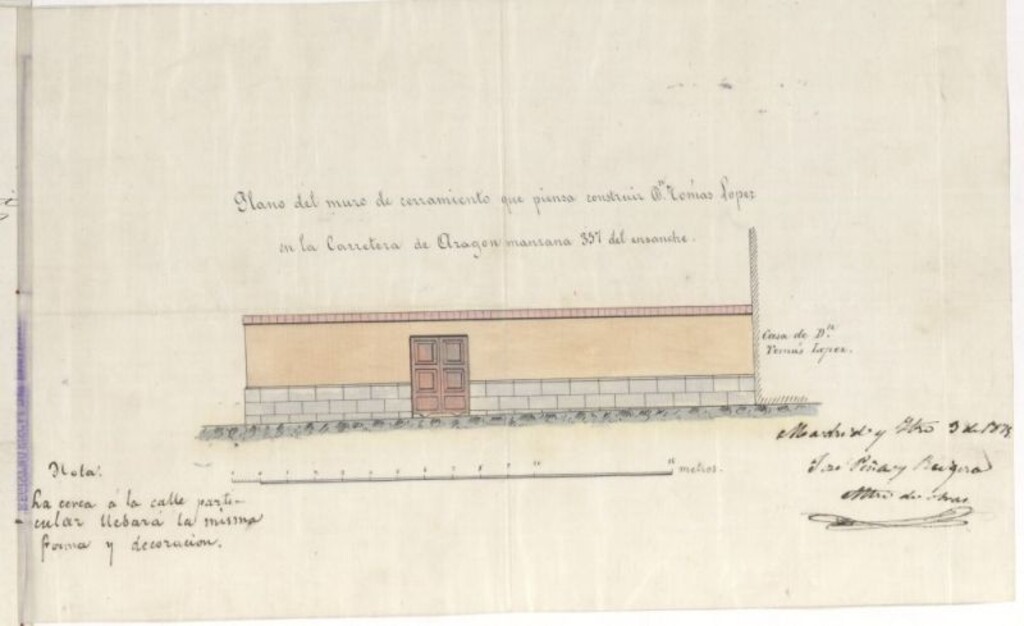 Plano del muro de cerramiento que piensa construir Dn. Tomas Lopez
en la Carretera de Aragon manzana 357 del ensanche.
Casa de Dn.
Tomás Lopez.
Madrid y 3 de
José Peña y
Mtro de obras
metros.
Nota:
La cerca á la calle parti-
cular llebará la misma
forma y decoración.